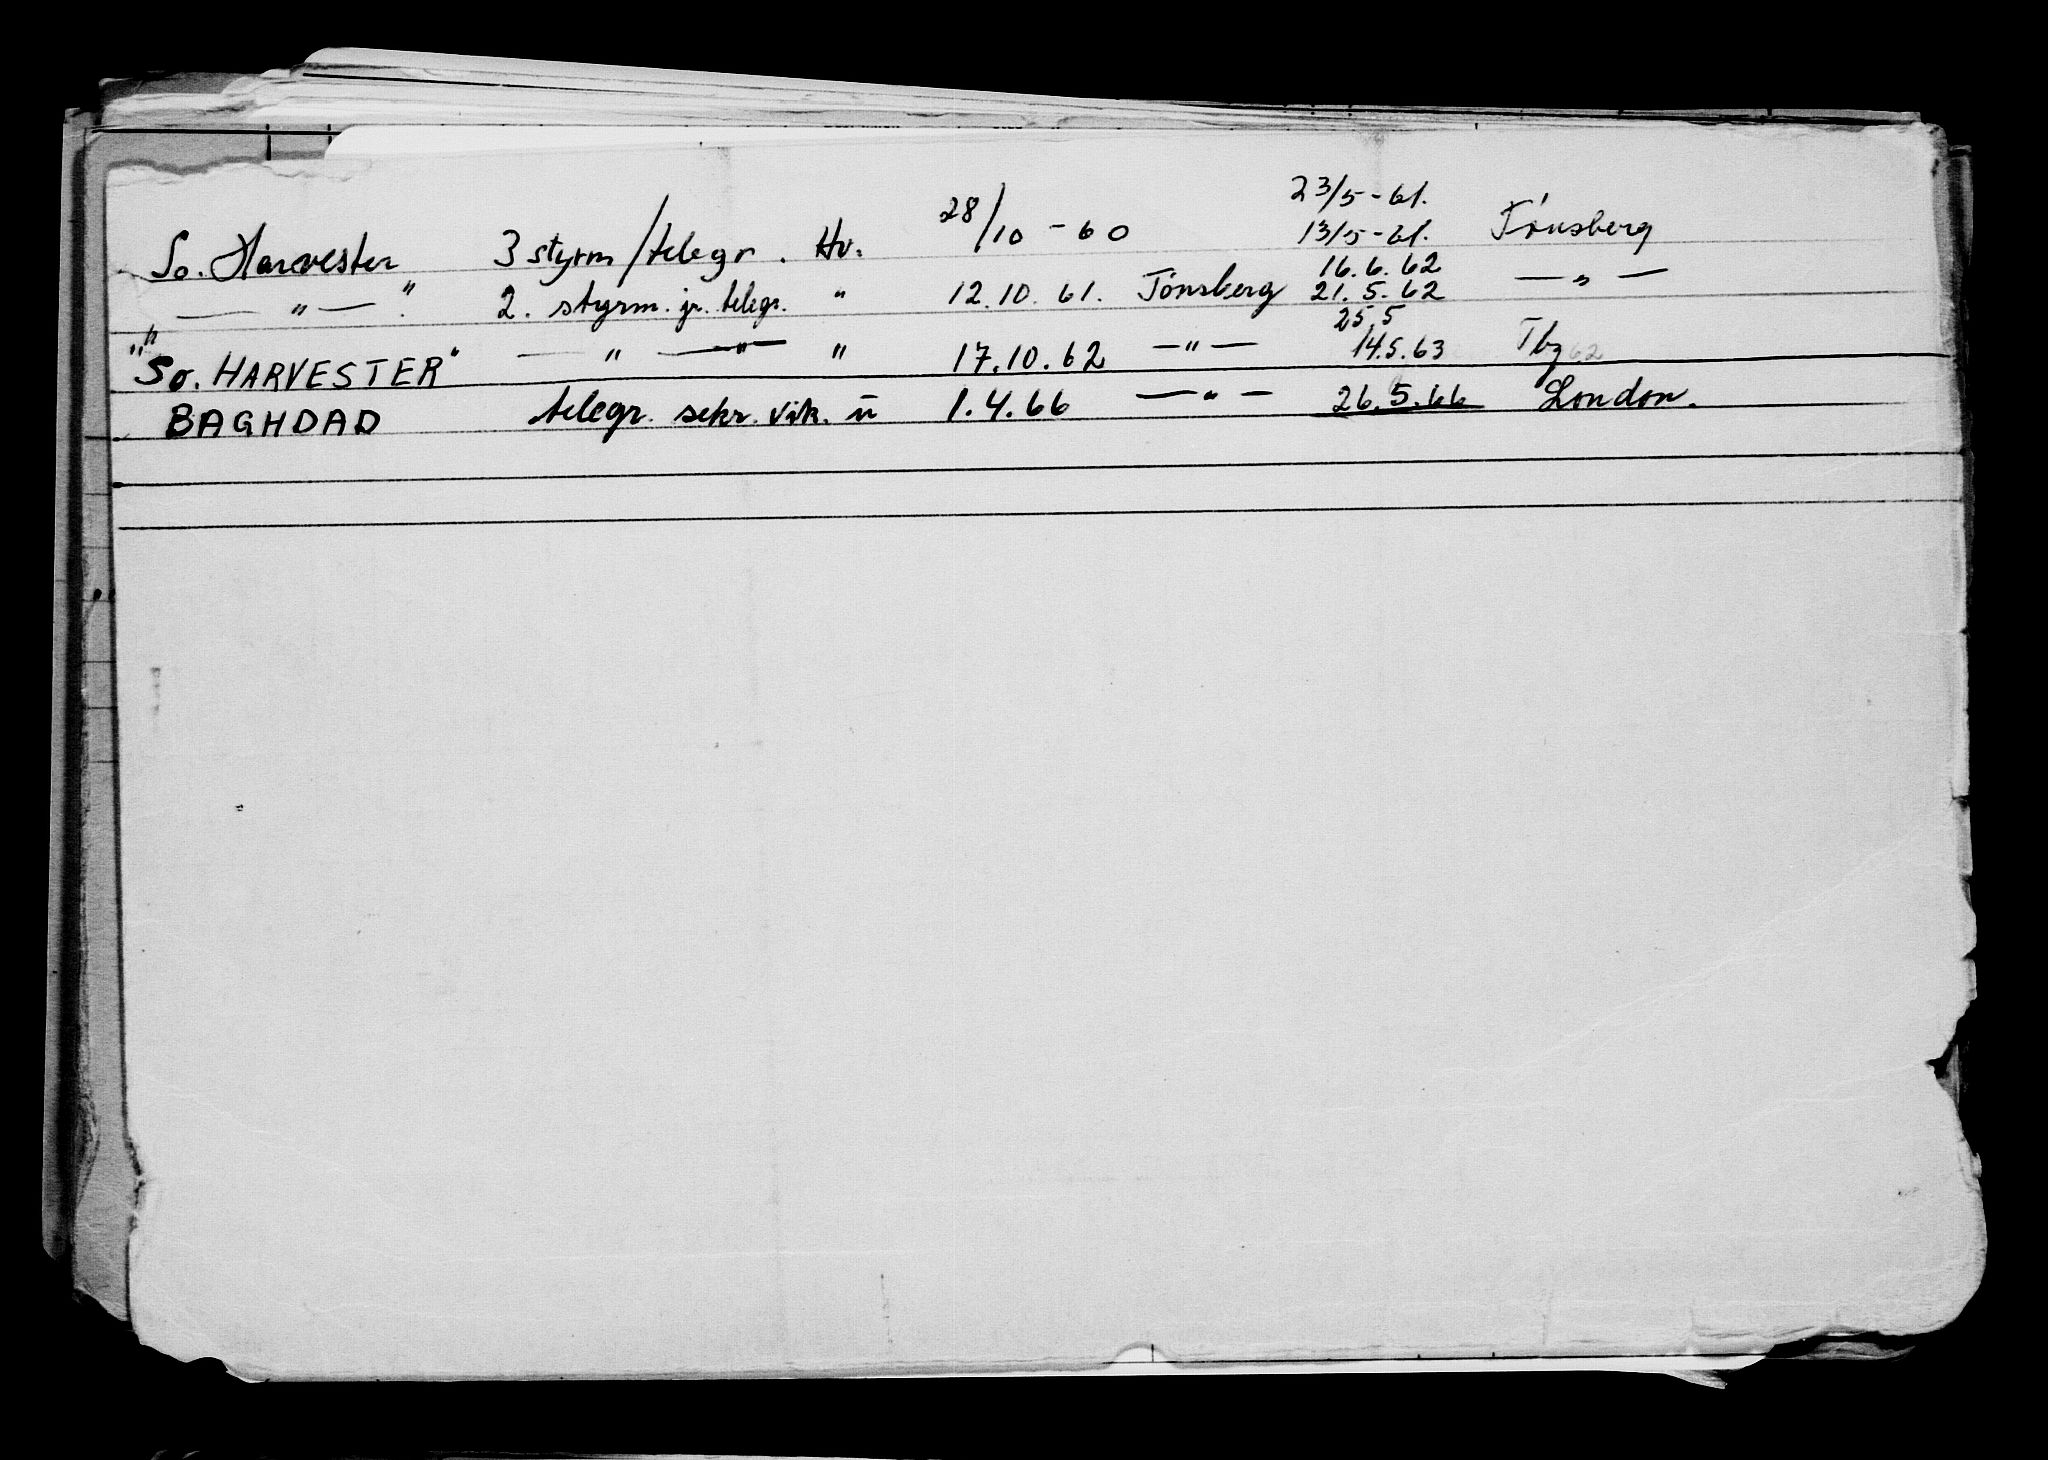 23/5-61.
So. Harvester 3 styrm/telegr. Hv. 28/10-60 13/5-61. Tønsberg
16.6.62
— " — " 2. styrm. jr. telegr. " 12.10.61. Tønsberg 21.5.62 — " —
25.5
"So. HARVESTER" — " — " — " 17.10.62 — " — 14.5.63 Tbg 62
BAGHDAD telegr. sekr. vik. " 1.4.66 — " — 26.5.66 London.